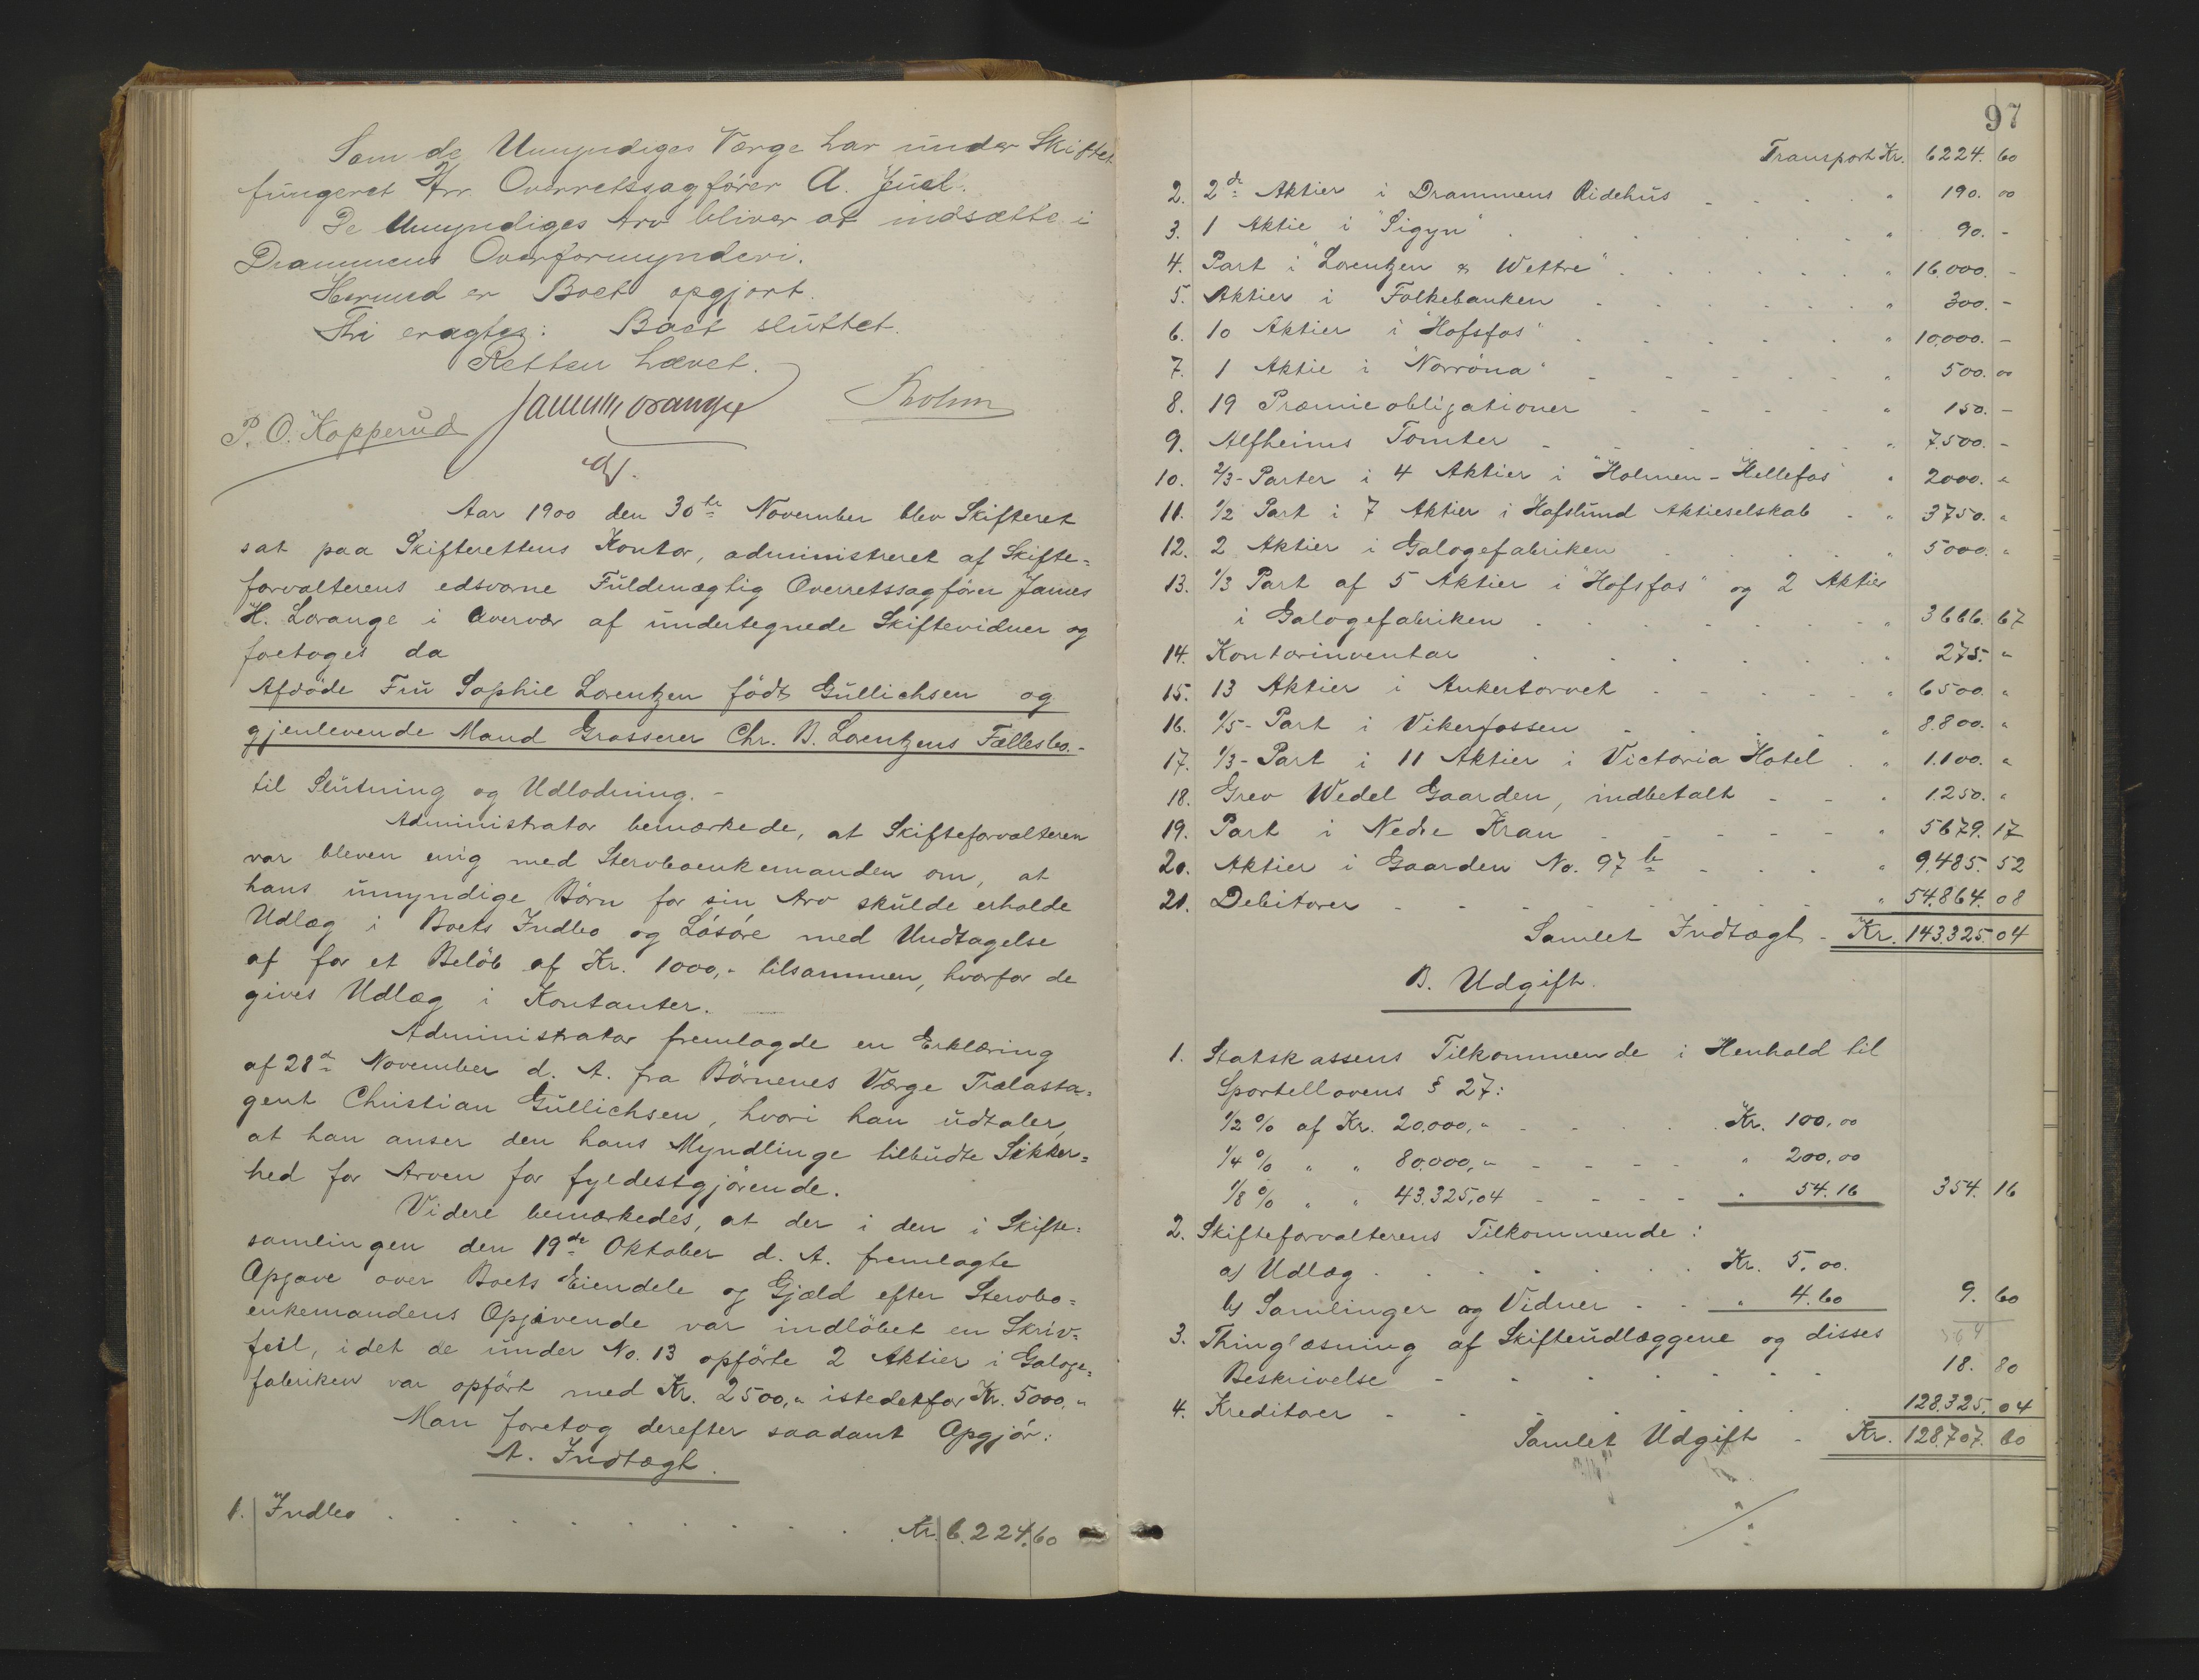 Som de Umyndiges Værge har under Skiftet
fungeret Hrr. Overretssagfører A. Juel.
De Umyndiges Arv bliver at indsætte i
Drammens Overformynderi.
Hermed er Boet opgjort.
Thi eragtes: Boet sluttet.
Retten hævet.
P. O. Kopperud James H Lorange Bohm
Aar 1900 den 30te November blev Skifteret
sat paa Skifterettens Kontor, administreret af Skifte=
forvalterens edsvorne Fuldmægtig Overretssagfører James
H. Lorange i Overvær af undertegnede Skiftevidner og
foetoges da
Afdøde Fru Sophie Lorentzen født Gullichsen og
gjenlevende Mand Grosserer Chr. B. Lorentzens Fællesbo.-
til Slutning og Udlodning.-
Administrator bemærkede, at Skifteforvalteren
var bleven enig med Stervboenkemanden om, at
hans umyndige Børn for sin Arv skulde erholde
Udlæg i Boets Indbo og Løsøre med Undtagelse
af for et Beløb af Kr. 1000,- tilsammen, hvorfor de
gives Udlæg i Kontanter.
Administrator fremlagde en Erklæring
af 28de November d. A. fra Børnenes Værge Trælasta=
gent Christian Gullichsen, hvori han udtaler,
at han anser den hans Myndlinge tilbudte Sikker=
hed for Arven for fyldestgjørende.
Videre bemærkedes, at der i den i Skifte=
samlingen den 19de Oktober d. A. fremlagte
Opgave over Boets Eiendele og Gjæld efter Stervbo=
enkemandens Opgivende var indløbet en Skriv=
feil, idet de under No. 13 opførte 2 Aktier i Galoge=
fabriken var opført med Kr. 2500,- istedetfor Kr. 5000,-
Man foretog derefter saadant Opgjør:
A. Indtægt.
1. Indbo . . . Kr. 6.224.60
97
Transport Kr. 6224. 60
2. 2de Aktier i Drammens Ridehus - - - " 190. 00
3. 1 Aktie i "Sigyn" . . . " 90. -
4. Part i "Lorentzen & Wettre" . . . " 16.000. -
5. Aktier i Folkebanken . . . " 300. -
6. 10 Aktier i "Hofsfos" . . . " 10.000. -
7. 1 Aktie i "Norrøna" - - - " 500. 00
8. 19 Præmieobligationer - - - " 150. -
9. Alfheims Tomter - - - " 7.500. -
10. 2/3-Parter i 4 Aktier i "Holmen-Hellefos" " 2000. "
11. 1/2 Part i 7 Aktier i Hafslund Aktieselskab - " 3750. "
12. 2 Aktier i Galogefabriken . . . " 5000. "
13. 1/3 Part af 5 Aktier i "Hofsfos" og 2 Aktier
i Galogefabriken . . . " 3666. 67
14. Kontorinventar . . . " 275. "
15. 13 Aktier i Ankertorvet - - - " 6500. "
16. 1/5-Part i Vikerfossen - - - " 8.800. "
17. 1/3-Part i 11 Aktier i Victoria Hotel . " 1.100. "
18. Grev Wedel Gaarden, indbetalt - - " 1.250. "
19. Part i Nedre Kran - - - " 5679. 17
20. Aktier i Gaarden No. 97 b - - - " 9.485. 52
21. Debitorer - - - " 54.864. 08
Samlet Indtægt - Kr. 143.325. 04
B. Udgift.
1. Statskassens Tilkommende i Henhold til
Sportellovens § 27:
1/2 % af Kr. 20.000,- - - - Kr. 100,00
1/4 % " " 80.000,- - - - " 200,00
1/8 % " " 43.325,04 - - - " 54.16 354. 16
2. Skifteforvalterens Tilkommende:
a) Udlæg . . . Kr. 5.00.
b) Samlinger og Vidner - - " 4.60 9. 60
3. Thinglæsning af Skifteudlæggene og disses
Beskrivelse - - - 18. 80
4. Kreditorer - - - 128.325. 04
Samlet Udgift - Kr. 128.707. 60